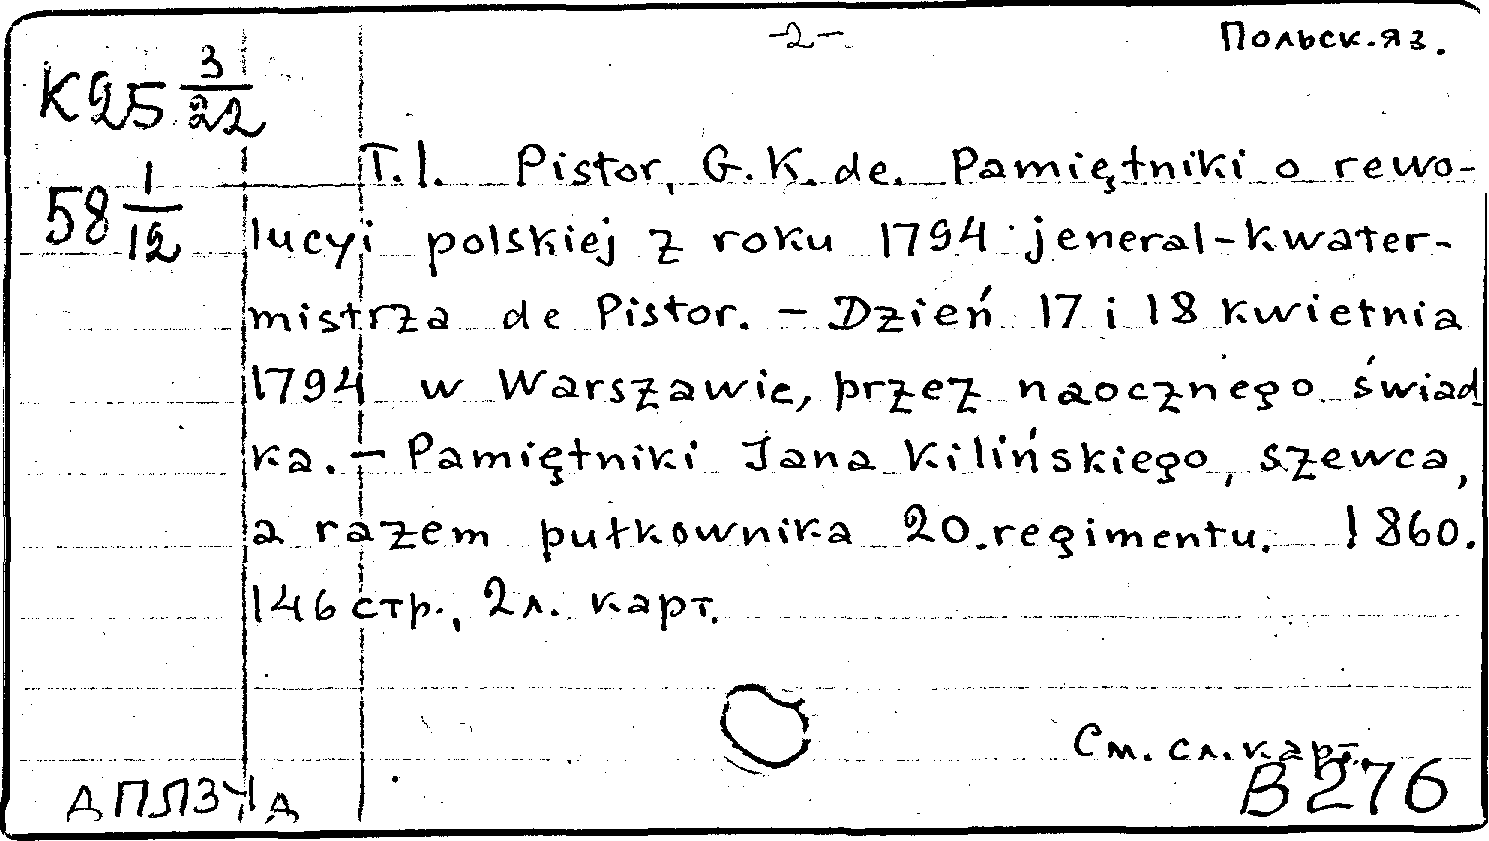 -2-
Польск.яз.
К25 3/22
58 1/12
T.I. Pistor, G.K. de. Pamiętniki o rewo-
lucyi polskiej z roku 1794 jeneral-kwater-
mistrza de Pistor. - Dzień 17 i 18 kwietnia
1794 w Warszawie, przez naocznego świad
ka. - Pamiętniki Jana Kilińskiego, szewca,
a razem pułkownika 20.regimentu. 1860.
146 стр., 2л. карт.
См. сл. карт.
В 276